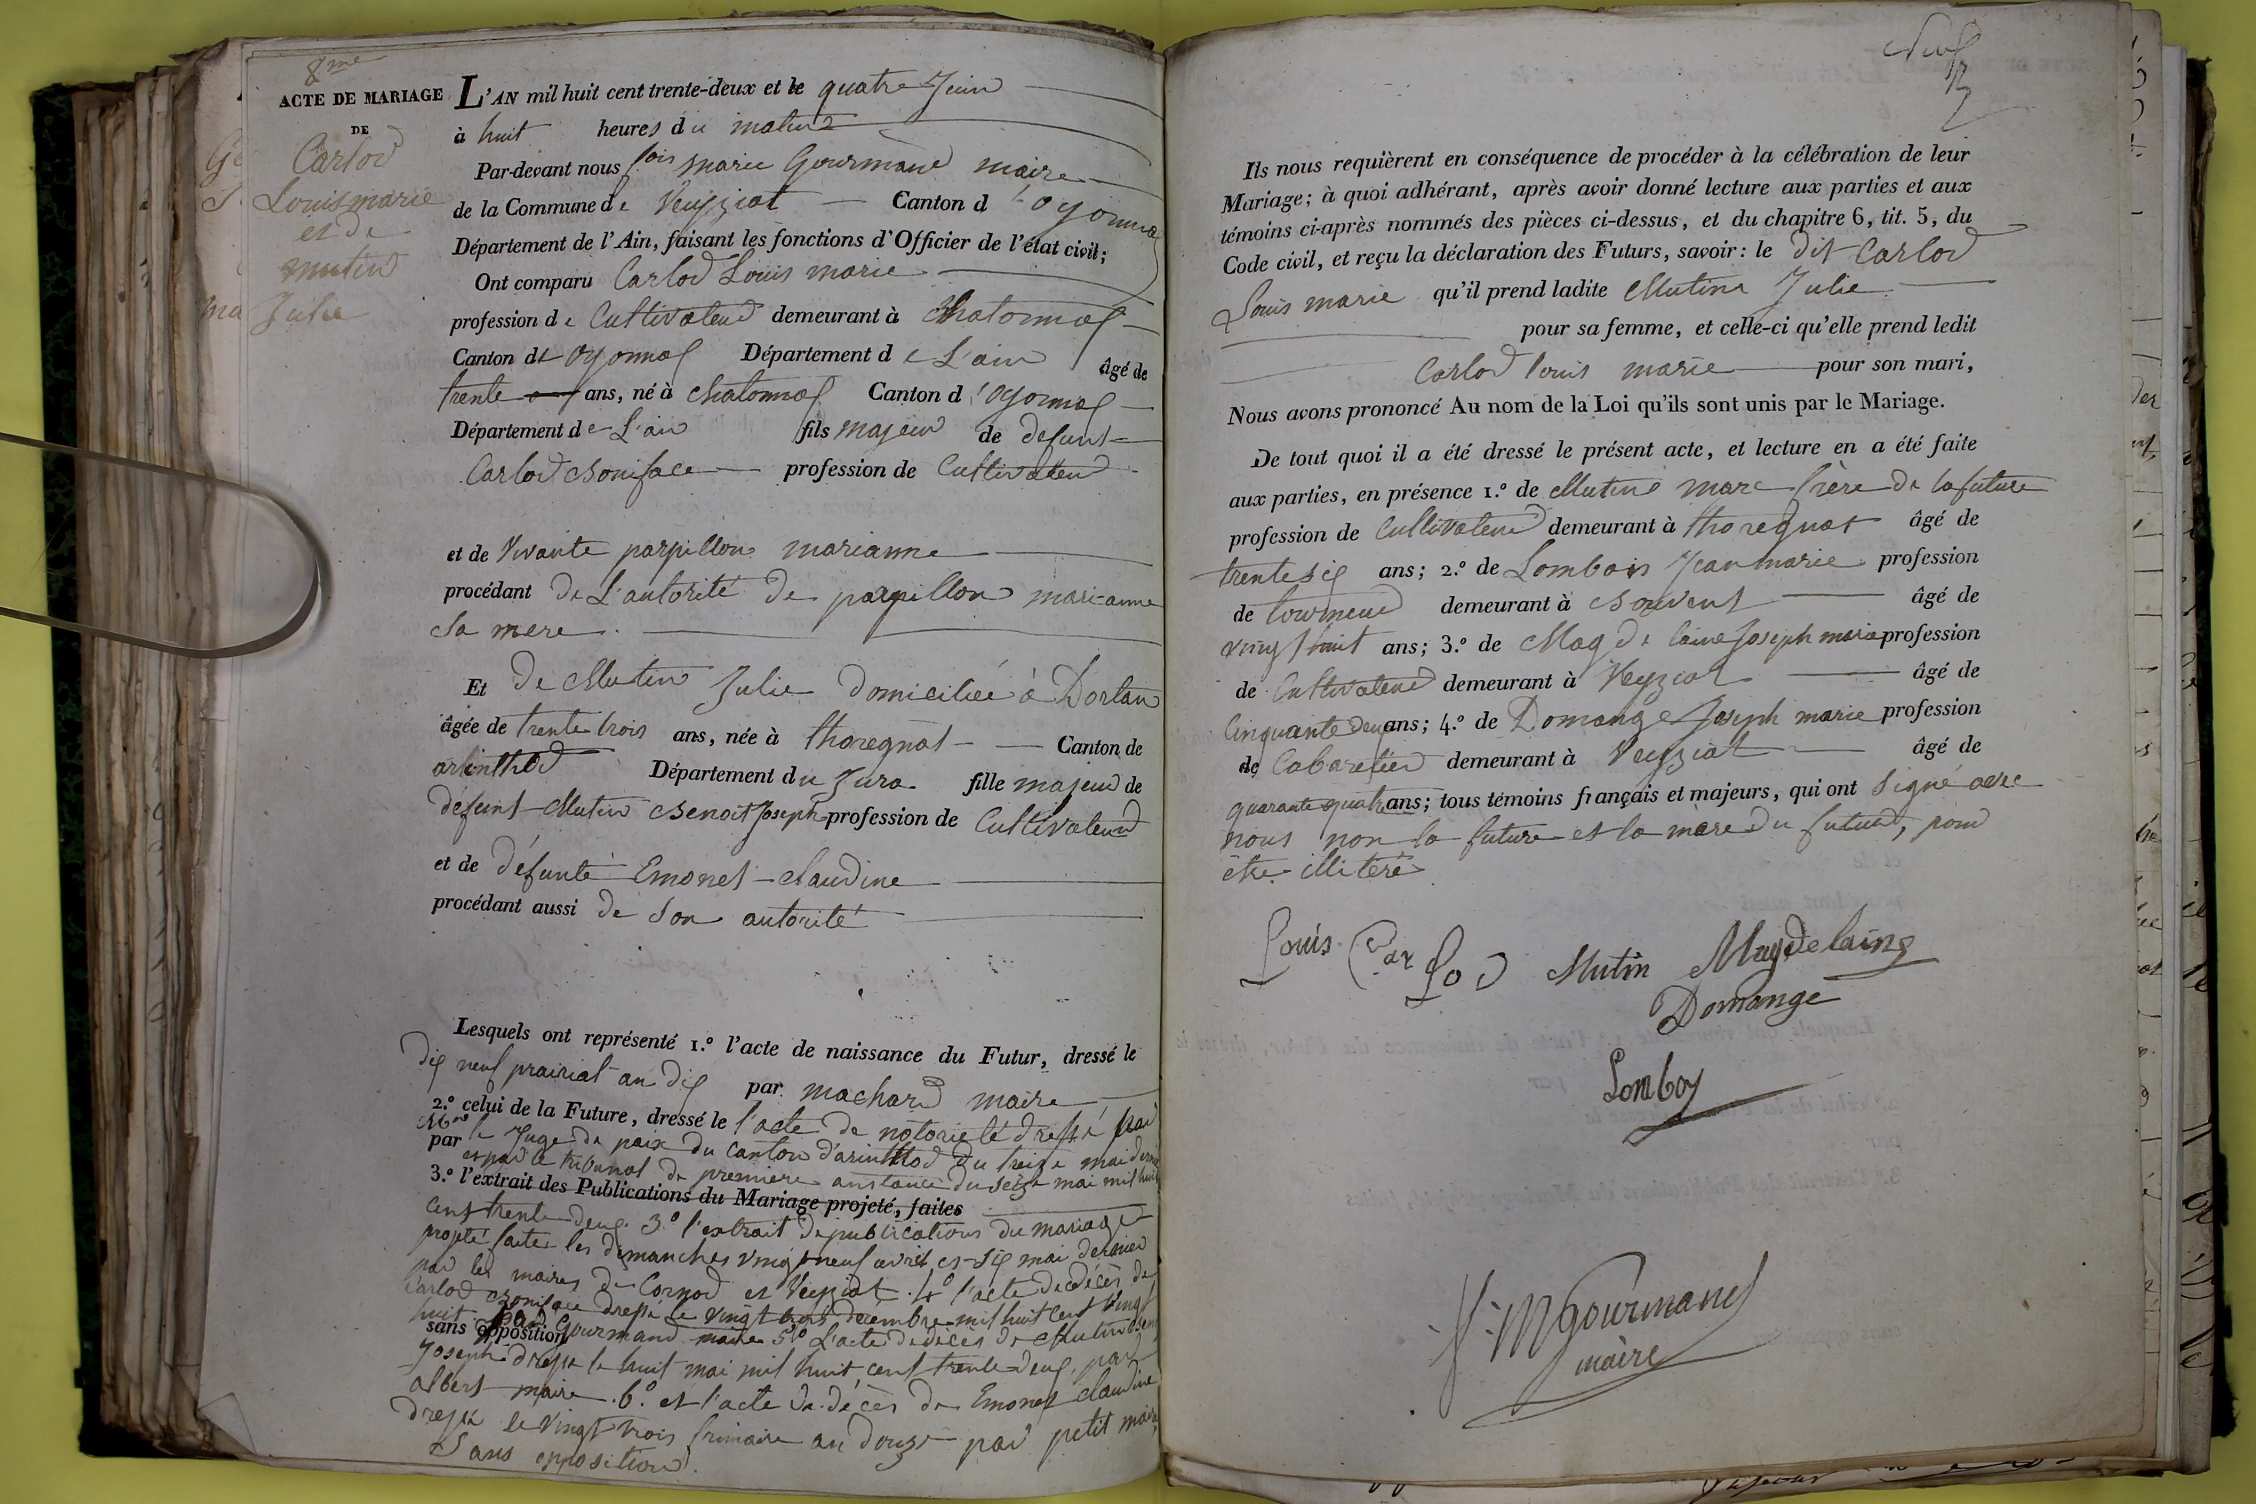 8me
ACTE DE MARIAGE
DE
Carlod
Louis marie
et de
mutin
Julie
L'AN mil huit cent trente-deux et le quatre Juin
à huit heures du matin
Par-devant nous fois marie Gourmand maire
de la Commune de Veyziat Canton d'oyonnax
Département de l'Ain, faisant les fonctions d'Officier de l'état civil;
Ont comparu Carlod Louis marie
profession de Cultivateur demeurant à Chatonnax
Canton de oyonnax Département de L'ain âgé de
trente ans, né à Chatonnax Canton d'oyonnax
Département de L'ain fils majeur de defunt
Carlod Boniface profession de Cultivateur
et de Vivante parpillon marianne
procédant de L'autorité de parpillon marianne
Sa mere.
Et De Mutin Julie domiciliée à Dortan
âgée de trente trois ans, née à thoregnat Canton de
arinthod Département du Jura fille majeur de
défunt Mutin Benoit Joseph profession de Cultivateur
et de défunte Emonet claudine
procédant aussi de son autorité
Lesquels ont représenté 1.º l'acte de naissance du Futur, dressé le
dix neuf prairial an dix par machard maire
2.º celui de la Future, dressé le l'acte de notorieté dressé par
par le Juge de paix du Canton d'arinthod du treize mai dernier
et par le tribunal de premiere anstance du seize mai mil huit
3.º l'extrait des Publications du Mariage projeté, faites
Cent trente deux. 3.º l'extrait de publications du mariage
projeté faites les dimanches vingt neuf avril et six mai dernier
par les maires de Cornod et Veyziat. 4.º l'acte de décès de
Carlod Boniface dressé le vingt trois décembre mil huit cent vingt
huit par Gourmand maire 5.º L'acte de décès de Mutin Benoit
sans opposition
Joseph dressé le huit mai mil huit cent trente deux, par
albert maire. 6.º et l'acte de décès de Emonet claudine
dressé le vingt trois frimaire an douze par petit maire,
Sans opposition.
Neuf
Ils nous requièrent en conséquence de procéder à la célébration de leur
Mariage; à quoi adhérant, après avoir donné lecture aux parties et aux
témoins ci-après nommés des pièces ci-dessus, et du chapitre 6, tit. 5, du
Code civil, et reçu la déclaration des Futurs, savoir: le dit Carlod
Louis marie qu'il prend ladite Mutin Julie
pour sa femme, et celle-ci qu'elle prend ledit
Carlod Louis marie pour son mari,
Nous avons prononcé Au nom de la Loi qu'ils sont unis par le Mariage.
De tout quoi il a été dressé le présent acte, et lecture en a été faite
aux parties, en présence 1.º de Mutin marc frère de la future
profession de Cultivateur demeurant à thoregnat âgé de
trente six ans; 2.º de Lombois Jean marie profession
de tourneur demeurant à Bouvent âgé de
vingt huit ans; 3.º de Magdelaine Joseph marie profession
de Cultivateur demeurant à Veyziat âgé de
Cinquante deux ans; 4.º de Domange Joseph marie profession
de Cabaretier demeurant à Veyziat âgé de
quarante quatre ans; tous témoins français et majeurs, qui ont signé avec
nous non la future et la mère du futur, pour
être illiteré
Louis Carlod Mutin Magdelaine
Domange
Lomboy
f. M Gourmand
maire